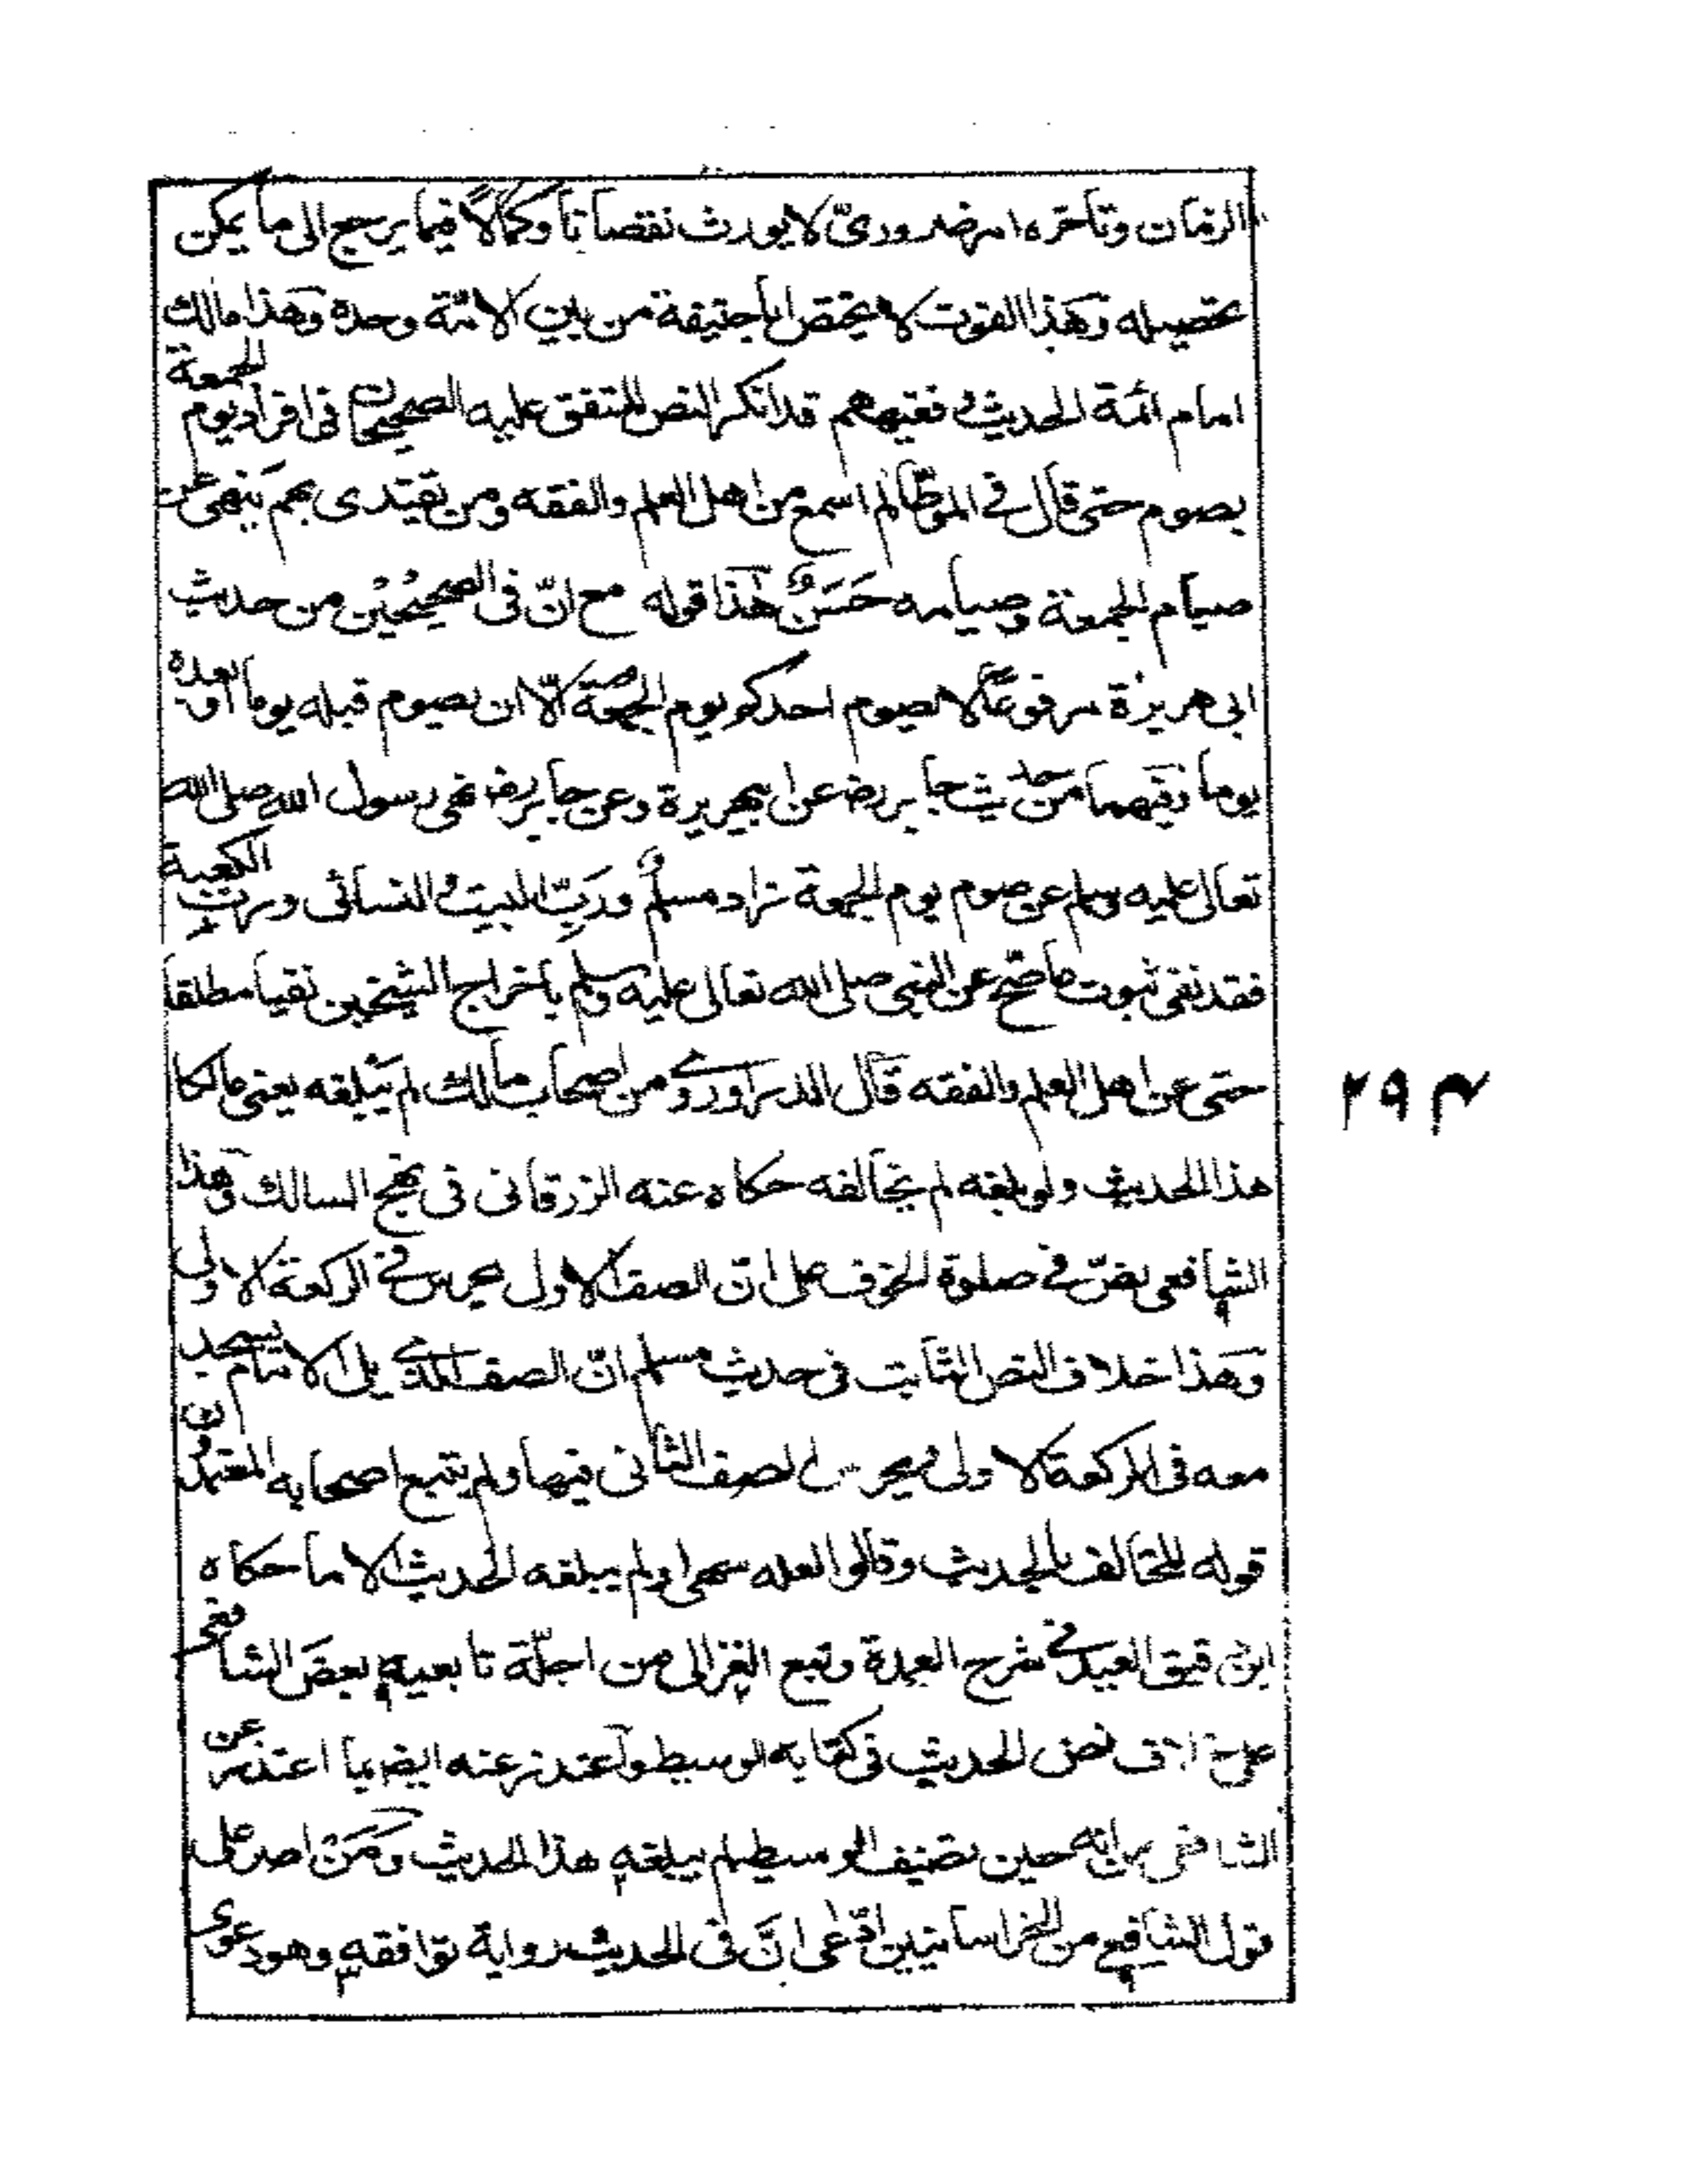 الزمان وتأخره امر ضروريّ لا يورث نقصاناً وكمالاً فيما يرجع الى ما يمكن
تحصيله وهذا الفوت لا يختص اباحنيفة من بين الائمة وحده وهذا مالك
امام ائمة الحديث وفقيههم قد انكر النص المتفق عليه الصحيحان فى افراد يوم الجمعة
بصوم حتى قال فى الموطّا لم اسمع من اهل العلم والفقه ومن يقتدى بهم ينهى عن
صيام الجمعة وصيامه حَسَنٌ هذا قوله مع انّ فى الصحيحَيْن من حديث
ابى هريرة مرفوعًا لا يصوم احدكم يوم الجمعة الّا ان يصوم قبله يوما او بعده
يوما وفيهما من حديث جابر رض عن ابيهريرة وعن جابر رض نهى رسول الله صلى الله
تعالى عليه وسلم عن صوم يوم الجمعة زاد مسلمٌ وربّ البيت والنسائى ورب الكعبة
فقد نفى ثبوت ما صحّ عن النبى صلى الله تعالى عليه وسلم باخراج الشيخين نفيا مطلقا
حتى عن اهل العلم والفقه قال الدراوردى ومن اصحاب مالك لم يبلغه يعنى مالكا
٢٩٣
هذا الحديث ولو بلغه لم يخالفه حكاه عنه الزرقانى فى نهج السالك وهذا
الشافعى نصّ فى صلوة الخوف على ان الصف الاول يحرس فى الركعة الاولى
وهذا خلاف النص الثابت فى حديث مسلم انّ الصف الذى يلى الامام يسجد
معه فى الركعة الاولى ويحرس الصف الثانى فيها ولم يتبع اصحابه المعتمدون
قوله المخالف بالحديث وقالوا لعله سهى او لم يبلغه الحديث الا ما حكاه
ابن دقيق العيد فى شرح العمدة وتبع الغزالى من اجلّة تابعيه بعض الشافعى
على خلاف نص الحديث فى كتابه الوسيط واعتذر عنه ايضا بما اعتذر عن
الشافعى بانه حين تصنيف الوسيط لم يبلغه هذا الحديث ومَن اصر على
قول الشافعى من الخراسانيين ادّعى انّ فى الحديث رواية توافقه وهو دعوى